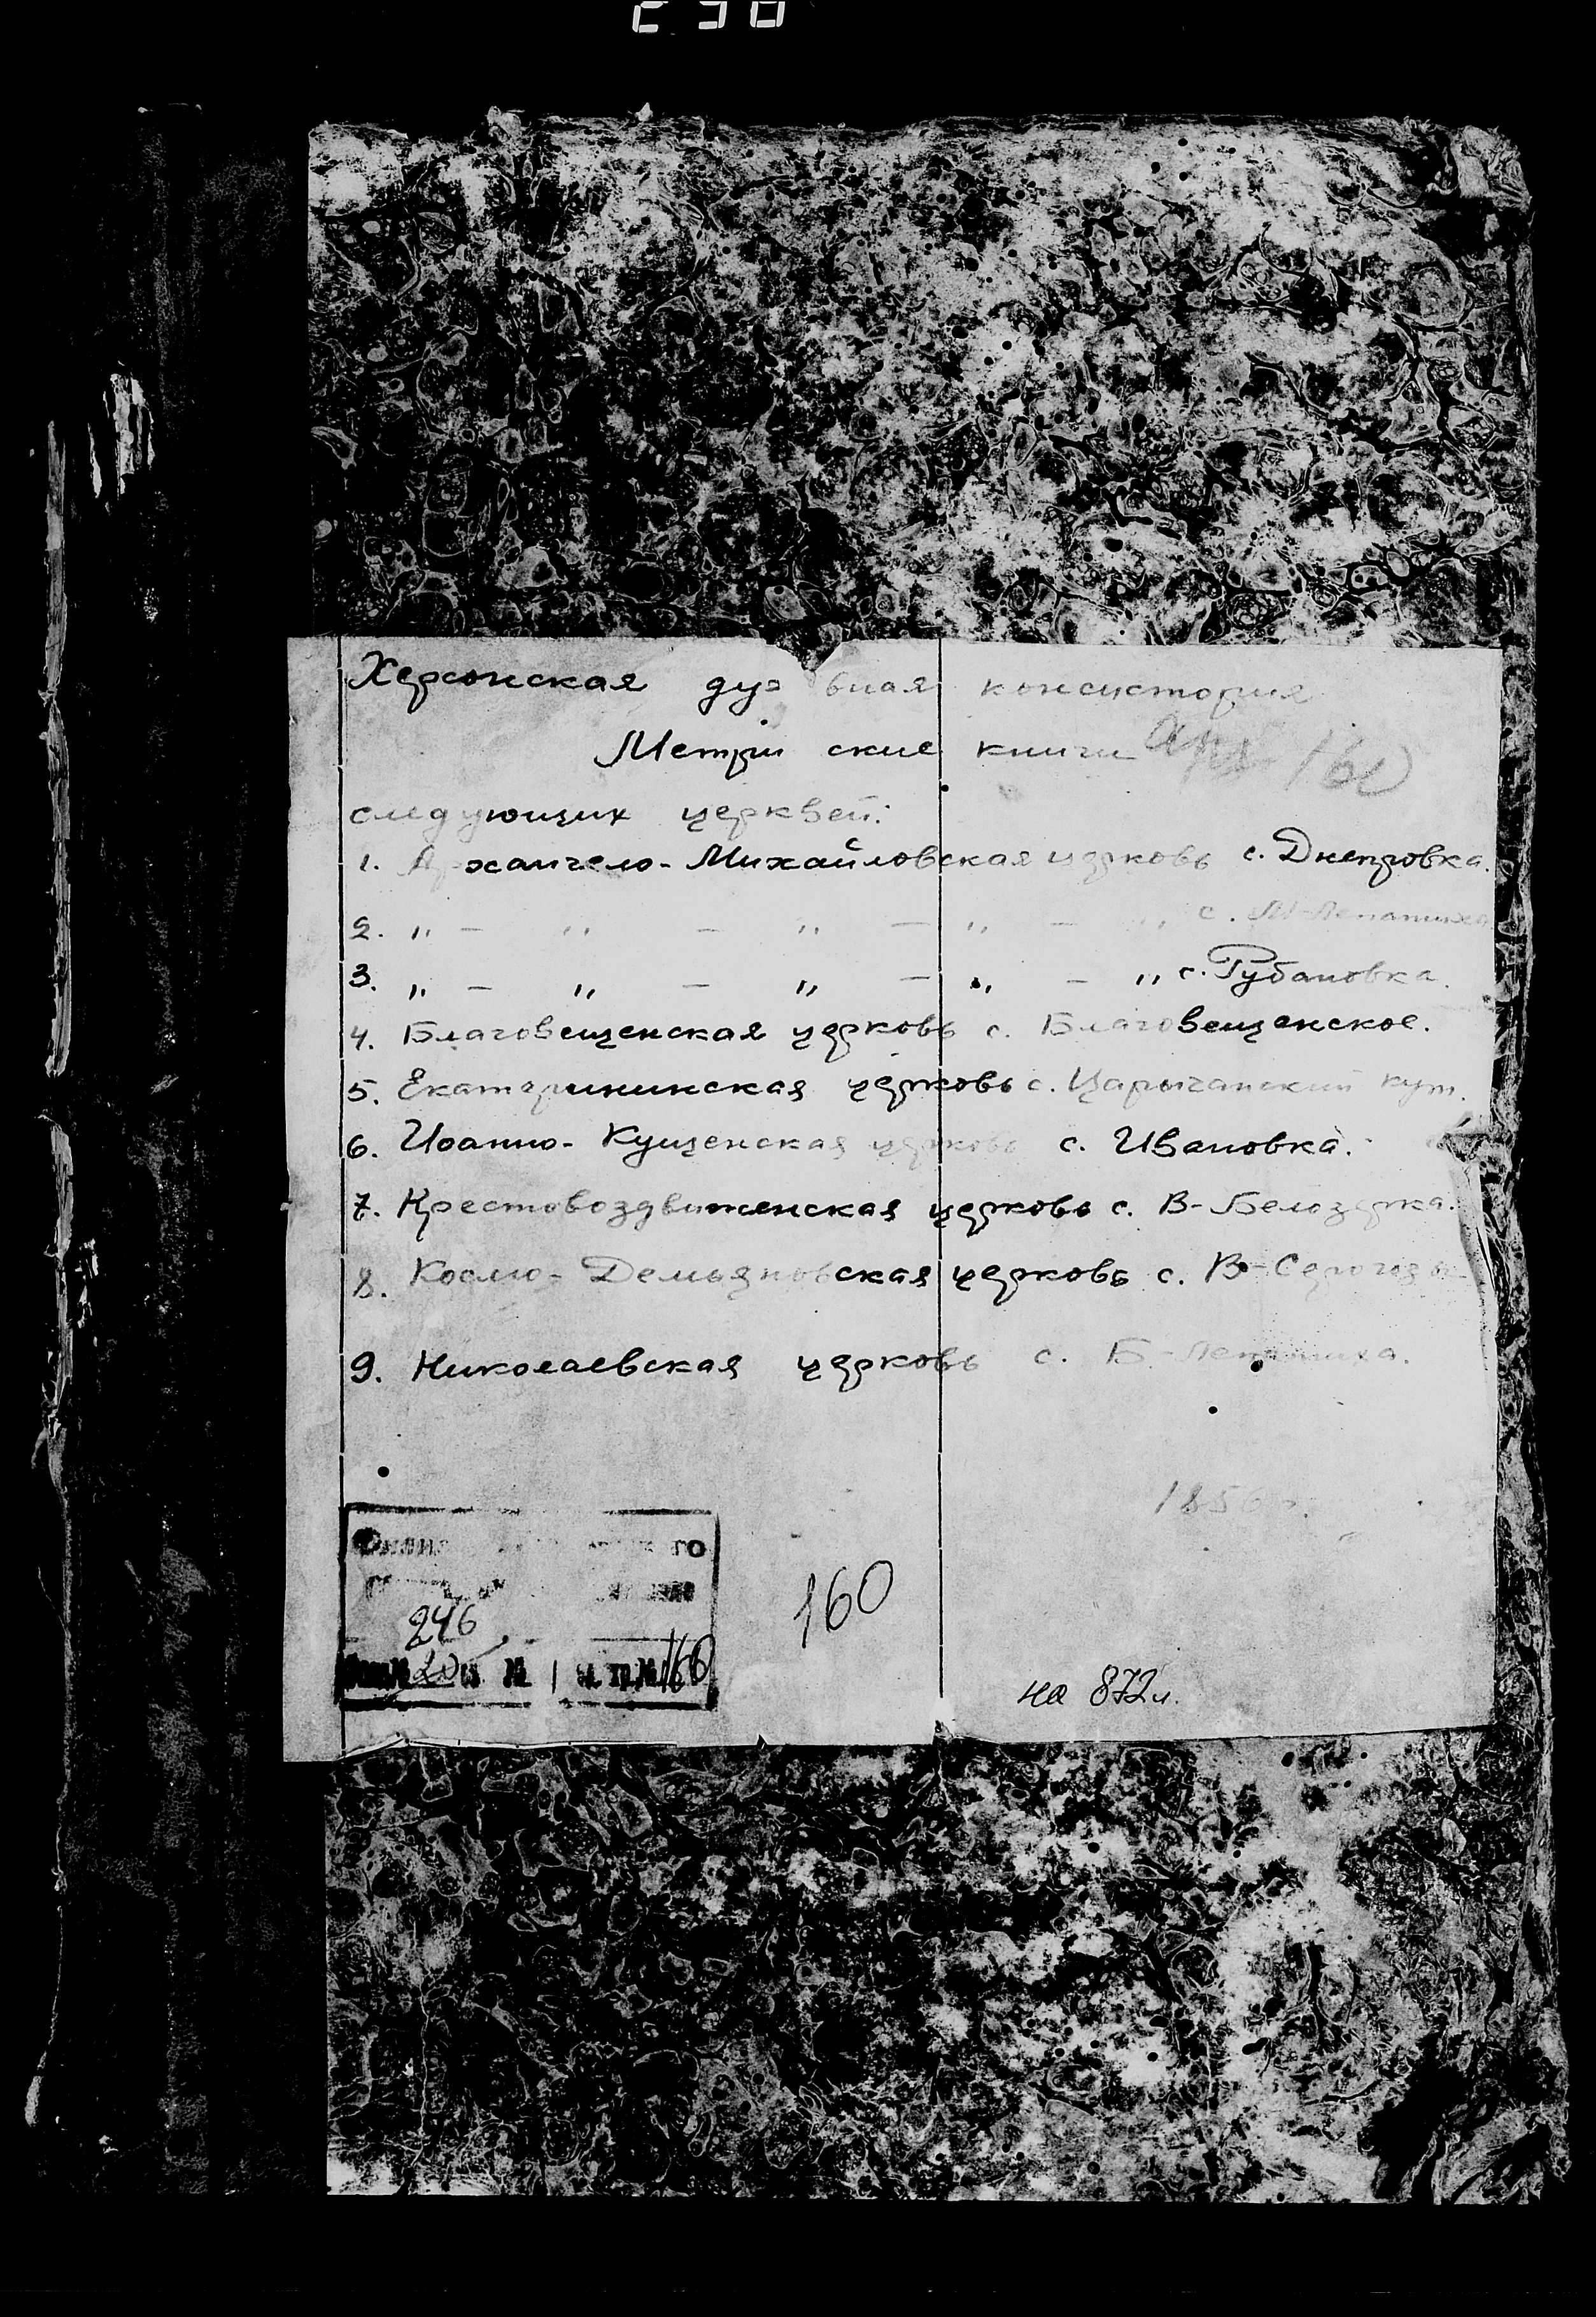 Херсонская духовная консистория
Метрические книги арх 160
следующих церквей:
1. Архангело-Михайловская церковь с. Днепровка.
2. „ – „ – „ – „ – „ с. М-Лепатиха
3. „ – „ – „ – „ – „ с. Рубановка.
4. Благовещенская церковь с. Благовещенское.
5. Екатерининская церковь с. Царычанский кут.
6. Иоанно-Кущенская церковь с. Ивановка.
7. Крестовоздвиженская церковь с. В-Белозерка.
8. Космо-Демьяновская церковь с. В-Серогозы
9. Николаевская церковь с. Б-Лепатиха.
1856 г.
246
160
160
на 872л.